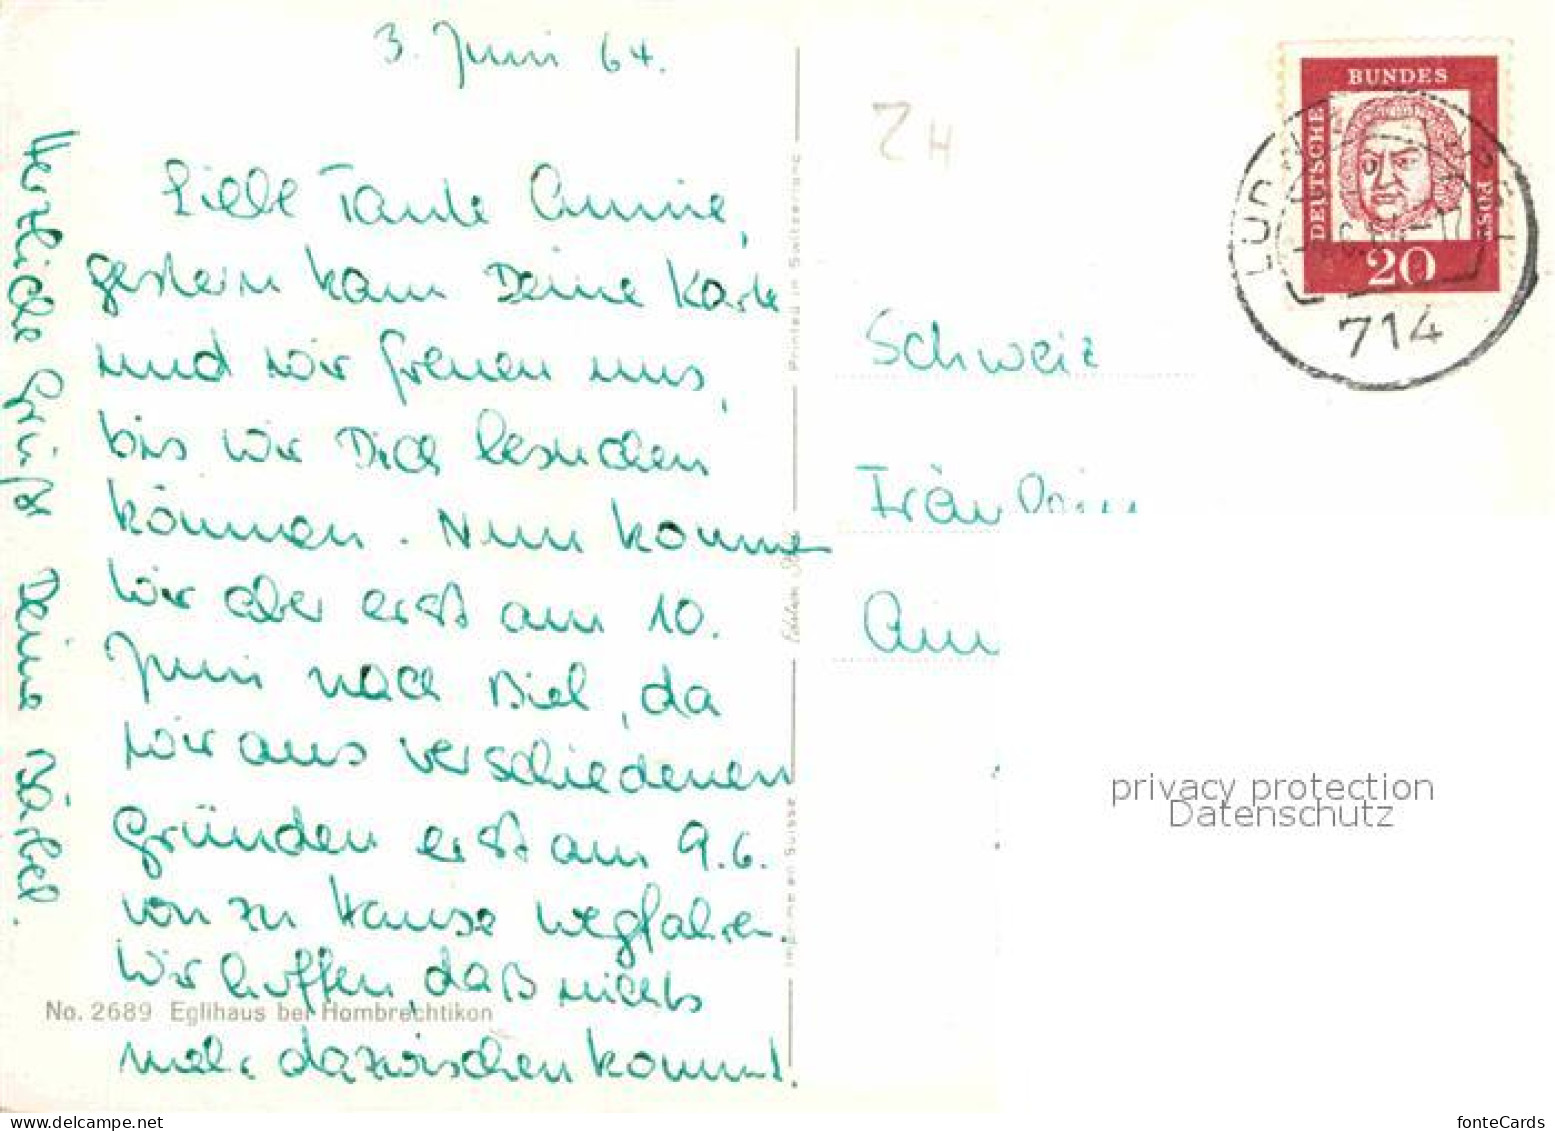 3. Juni 64.
Liebe Tante Annie,
gestern kam Deine Karte
und wir freuen uns,
bis wir Dich besuchen
können. Nun kommen
wir aber erst am 10.
Juni nach Biel, da
wir aus verschiedenen
Gründen erst am 9.6.
von zu Hause wegfahren.
Wir hoffen, daß nichts
mehr dazwischen kommt.
Herzliche Grüße Deine Bärbel.
No. 2689 Eglihaus bei Hombrechtikon
Imprimé en Suisse
Edition
Printed in Switzerland
ZH
DEUTSCHE BUNDESPOST
20
714
Schweiz
Fräulein
privacy protection
Datenschutz
fonteCards